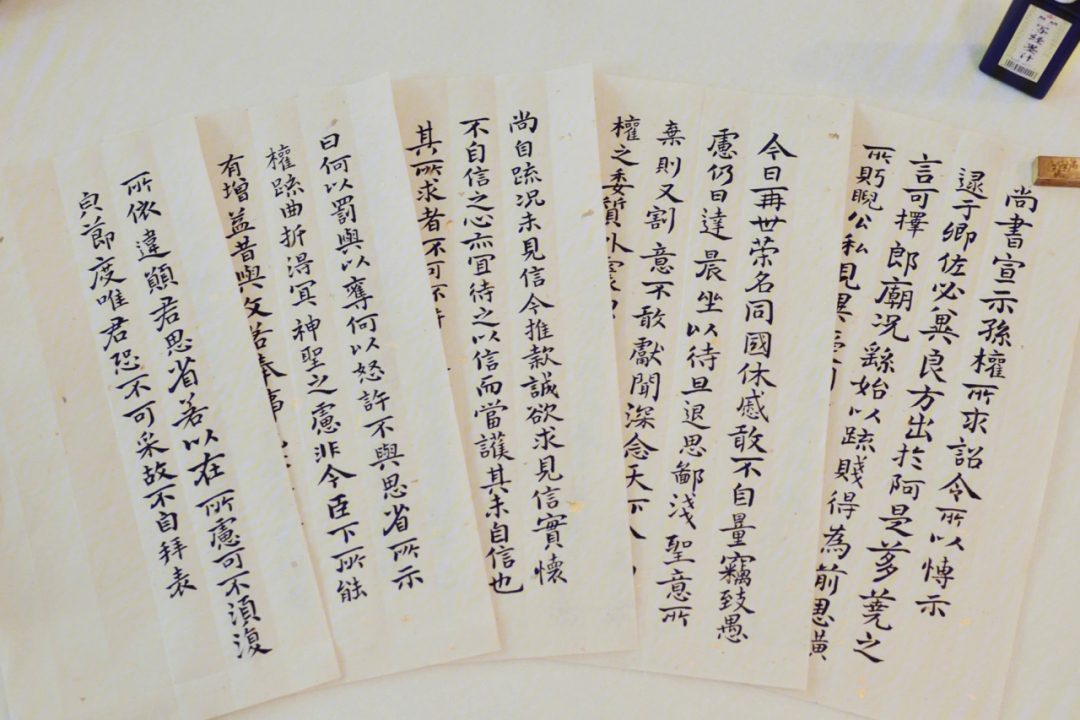 尚書宣示孫權所求詔令所以博示
逮于卿佐必兾良方出於阿是芻蕘之
言可擇郎廟況繇始以疏賤得為前恩橫
所眄睨公私見異愛同
今日再世榮名同國休慼敢不自量竊致愚
慮仍日達晨坐以待旦退思鄙淺聖意所
棄則又割意不敢獻聞深念天下
權之委質外震
尚自疏況未見信今推款誠欲求見信實懷
不自信之心亦宜待之以信而當護其未自信也
其所求者不可不許
曰何以罰與以奪何以怒許不與思省所示
權疏曲折得宜神聖之慮非今臣下所能
有增益昔與文若奉事
所依違願君思省若以在所慮可不須復
皃節度唯君恐不可采故不自拜表
寫經墨汁